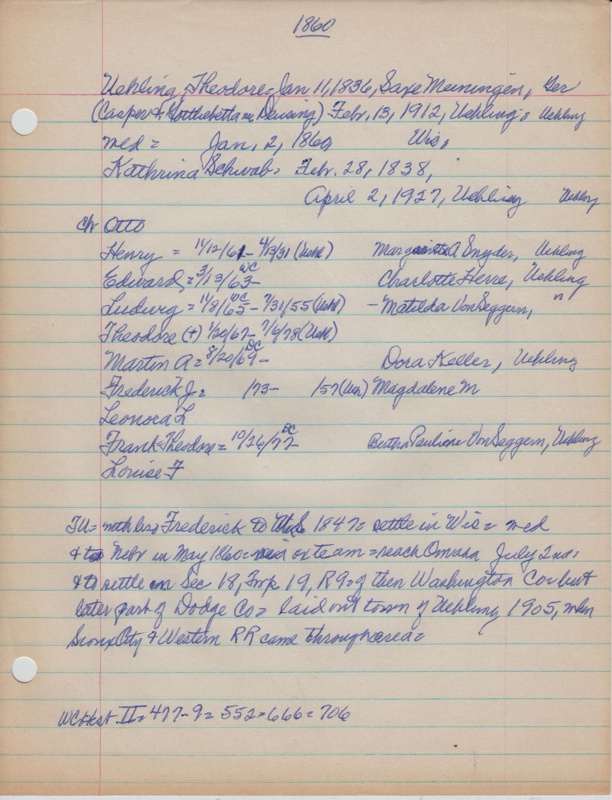 1860
Uehling, Theodore = Jan 11, 1836, Saxe Meiningen, Ger
(Casper & Gottliebetta nee Deusing) Febr. 13, 1912, Uehling = Uehling
med = Jan. 2, 1860, Wis,
Kathrina Schwab = Febr. 28, 1838,
April 2, 1927, Uehling Uehling
ch Otto
Henry = 11/12/61 - 4/13/31 (Uehl) Margaretta A Snyder, Uehling
Edward = 3/13/63 - WC Charlotte Herre, Uehling
Ludwig = 11/8/65 - DC 7/31/55 (Uehl) - Matilda Von Seggern, "
Theodore (+) 1/20/67 - 7/6/78 (Uehl)
Martin A = 8/20/69 - DC Dora Keller, Uehling
Frederick J = /73 - /57 (Uehl) Magdalene M
Leonora L
Frank Theodore = 10/26/77 DC Bertha Pauline Von Seggern, Uehling
Louise F
TU = with bro Frederick to US 1847 = settle in Wis = med
& to Nebr in May 1860 = via ox team = reach Omaha July 2nd =
& to settle on Sec 18, Twp 19, R 9 = of then Washington Co but
later part of Dodge Co = laid out town of Uehling 1905, when
Sioux City & Western RR came through area =
WC Hist II = 477-9 = 552 = 666 = 706